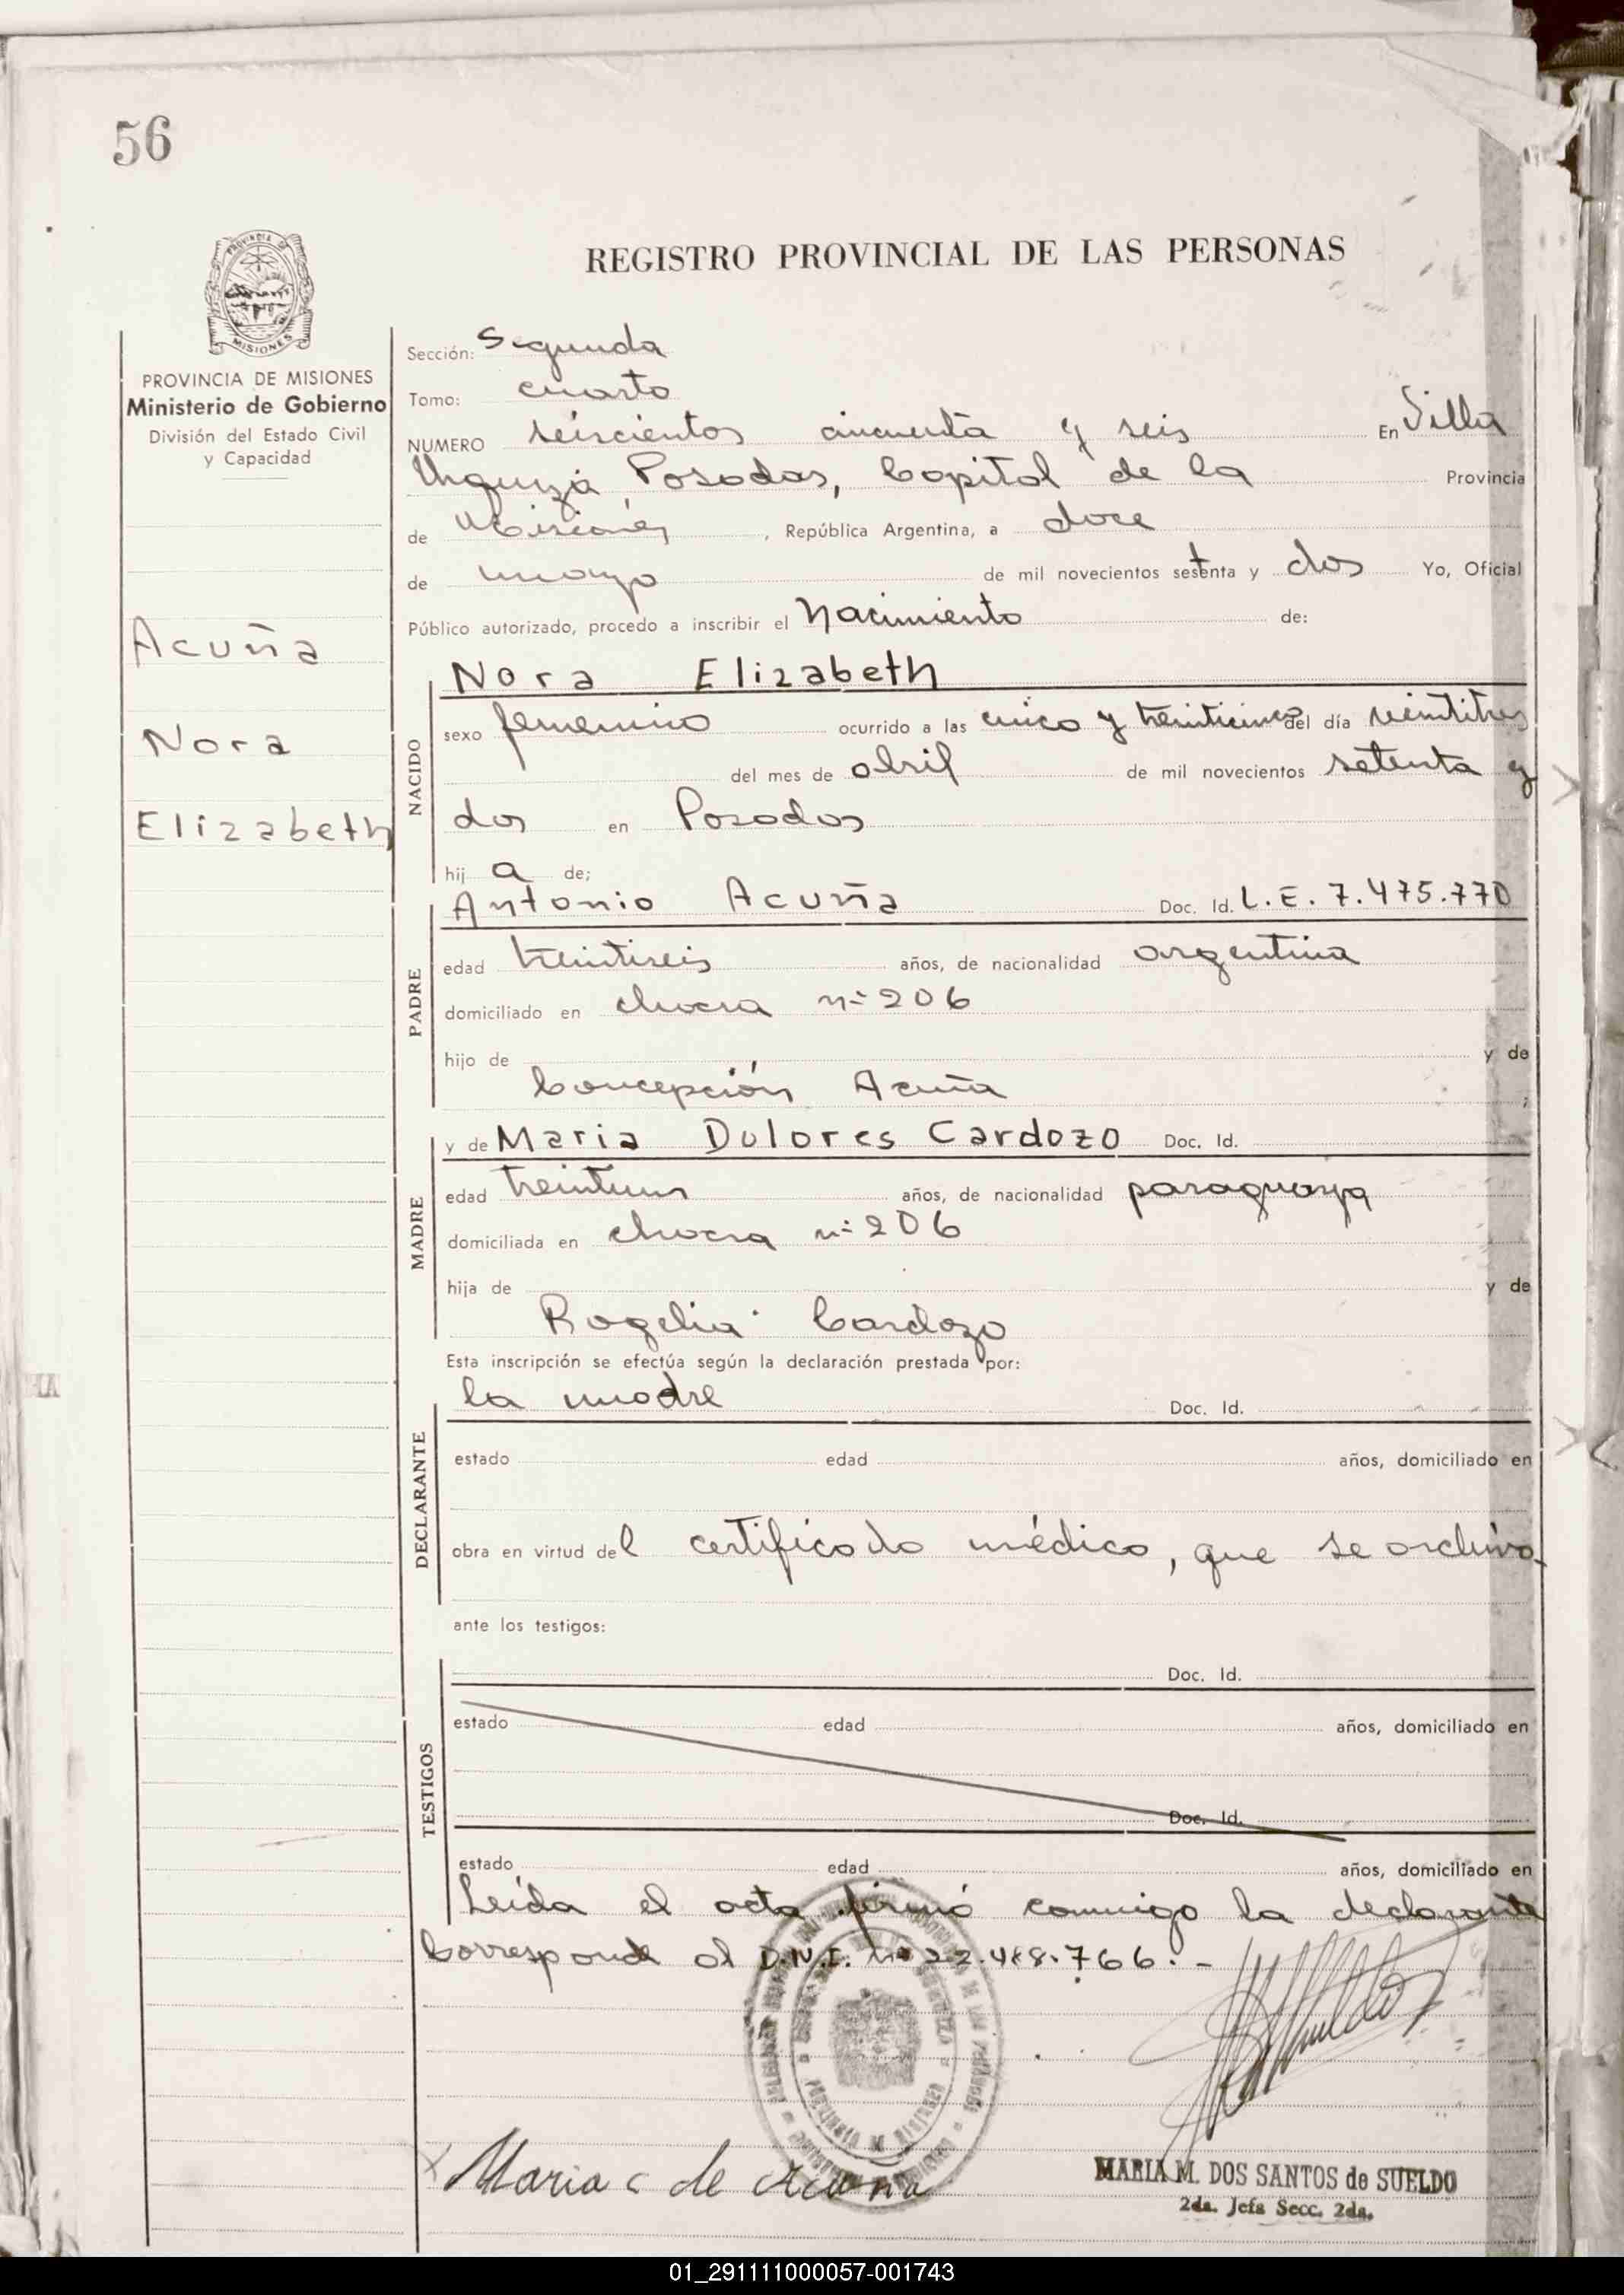 56
REGISTRO PROVINCIAL DE LAS PERSONAS
PROVINCIA DE
MISIONES
PROVINCIA DE MISIONES
Ministerio de Gobierno
División del Estado Civil
y Capacidad
Acuña
Nora
Elizabeth
Sección: Segunda
Tomo: cuarto
NUMERO seiscientos cincuenta y seis En Villa
Urquiza, Posadas, Capital de la Provincia
de Misiones, República Argentina, a doce
de mayo de mil novecientos setenta y dos Yo, Oficial
Público autorizado, procedo a inscribir el Nacimiento de:
NACIDO
Nora Elizabeth
sexo femenino ocurrido a las cinco y treinticinco del día veintitres
del mes de abril de mil novecientos setenta y
dos en Posadas
hija de;
PADRE
Antonio Acuña Doc. Id. L.E. 7.475.770
edad treintiseis años, de nacionalidad argentina
domiciliado en chacra nº 206
hijo de y de
Concepción Acuña ;
MADRE
y de Maria Dolores Cardozo Doc. Id.
edad treintiun años, de nacionalidad paraguaya
domiciliada en chacra nº 206
hija de y de
Rogelia Cardozo
Esta inscripción se efectúa según la declaración prestada por:
DECLARANTE
la madre Doc. Id.
estado edad años, domiciliado en
obra en virtud del certificado médico, que se archiva.
ante los testigos:
TESTIGOS
Doc. Id.
estado edad años, domiciliado en
Doc. Id.
estado edad años, domiciliado en
Leída el acta firmó conmigo la declarante
Corresponde al D.N.I. Nº 22.488.766.-
PROVINCIA DE MISIONES
Maria C de Acuña
MARIA M. DOS SANTOS de SUELDO
2da. Jefa Secc. 2da.
01_291111000057-001743